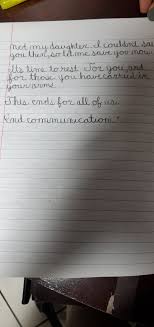 not my daughter. I couldn't save
you then, so let me save you now.
It's time to rest. For you, and
for those you have carried in
your arms.
This ends for all of us.
End communication."